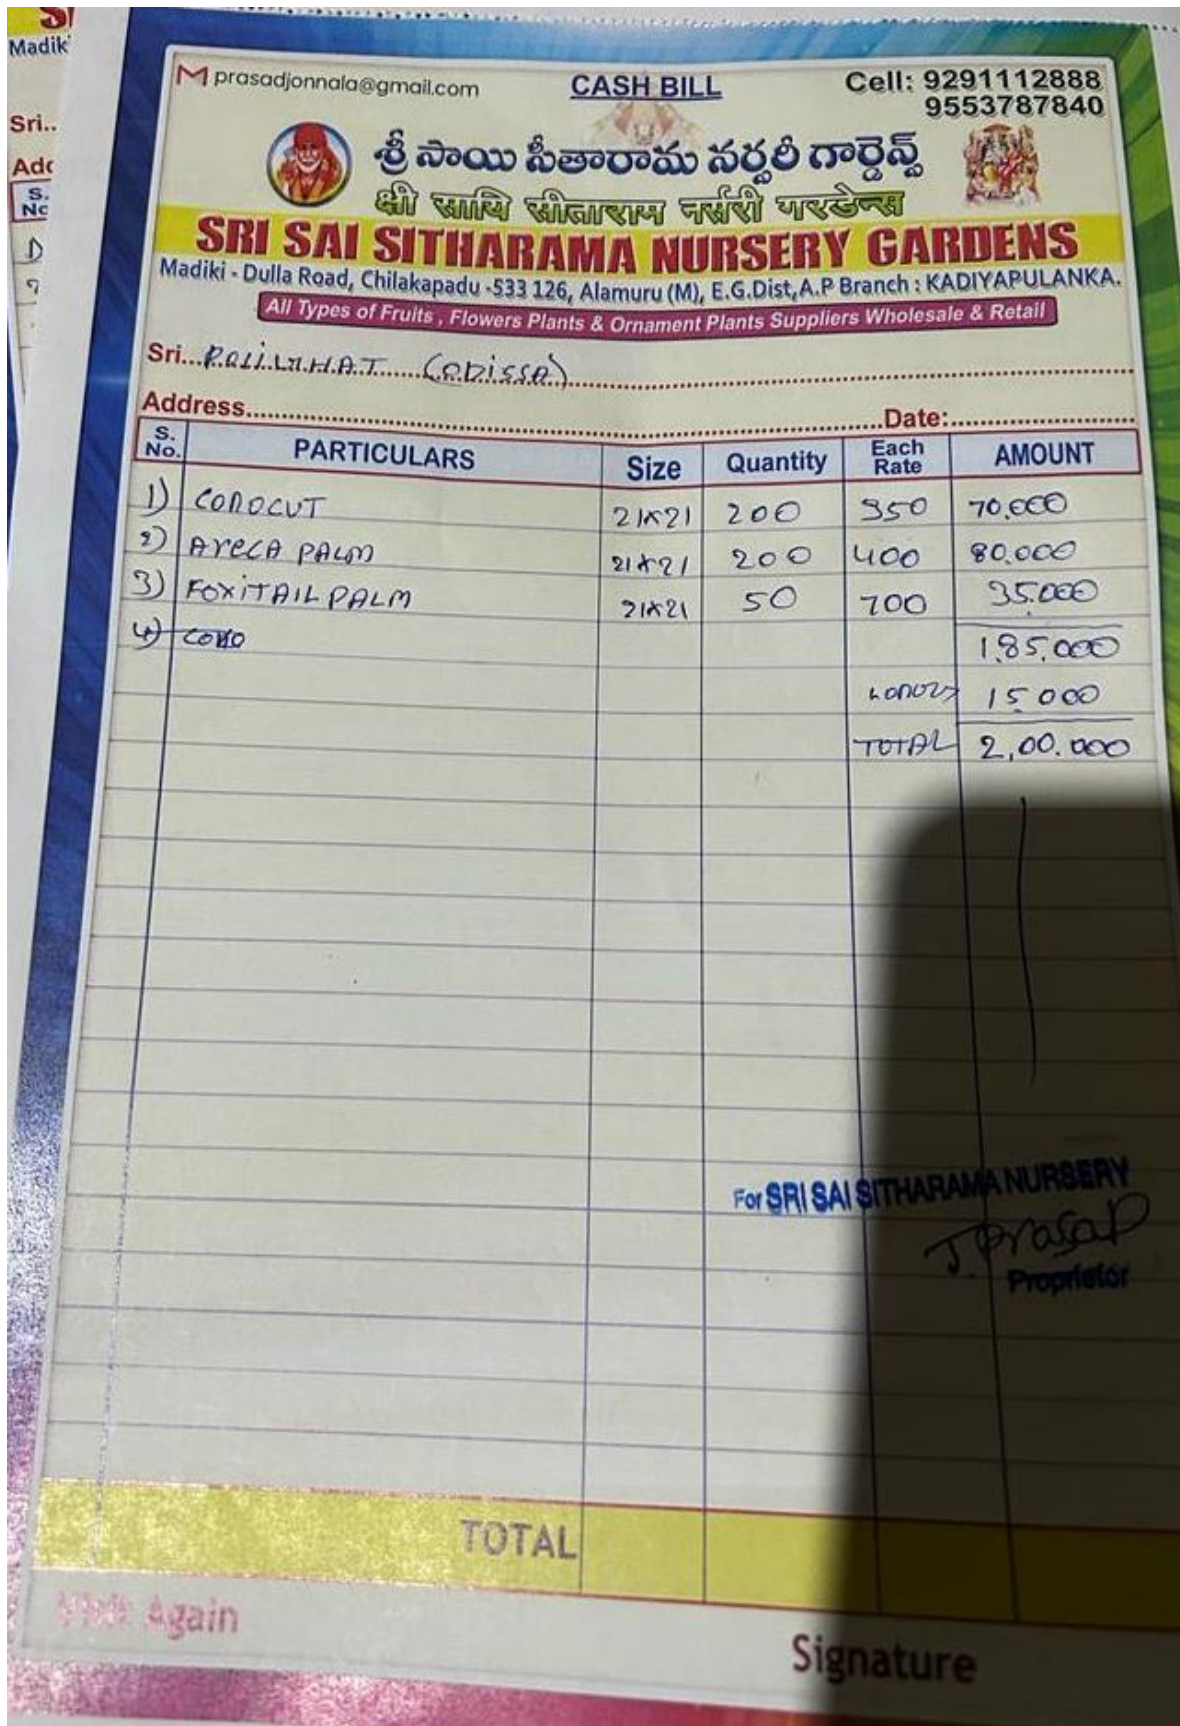 SI
Madik
Sri..
Add
S.
No
prasadjonnala@gmail.com
CASH BILL
Cell: 9291112888
9553787840
శ్రీ సాయి సీతారామ నర్సరీ గార్డెన్స్
क्षी सायि सीताराम नर्सरी गरडेन्स
SRI SAI SITHARAMA NURSERY GARDENS
Madiki - Dulla Road, Chilakapadu -533 126, Alamuru (M), E.G.Dist,A.P Branch : KADIYAPULANKA.
All Types of Fruits , Flowers Plants & Ornament Plants Suppliers Wholesale & Retail
Sri... (ODISSA)
Address... Date:...
S. No. PARTICULARS Size Quantity Each Rate AMOUNT
1) CONOCUT 21x21 200 350 70,000
2) ARECA PALM 21x21 200 400 80.000
3) FOXiTAIL PALM 21x21 50 700 35.000
4)
1,85,000
15.000
TOTAL 2,00.000
For SRI SAI SITHARAMA NURSERY
J. Prasad
Proprietor
TOTAL
Visit Again
Signature